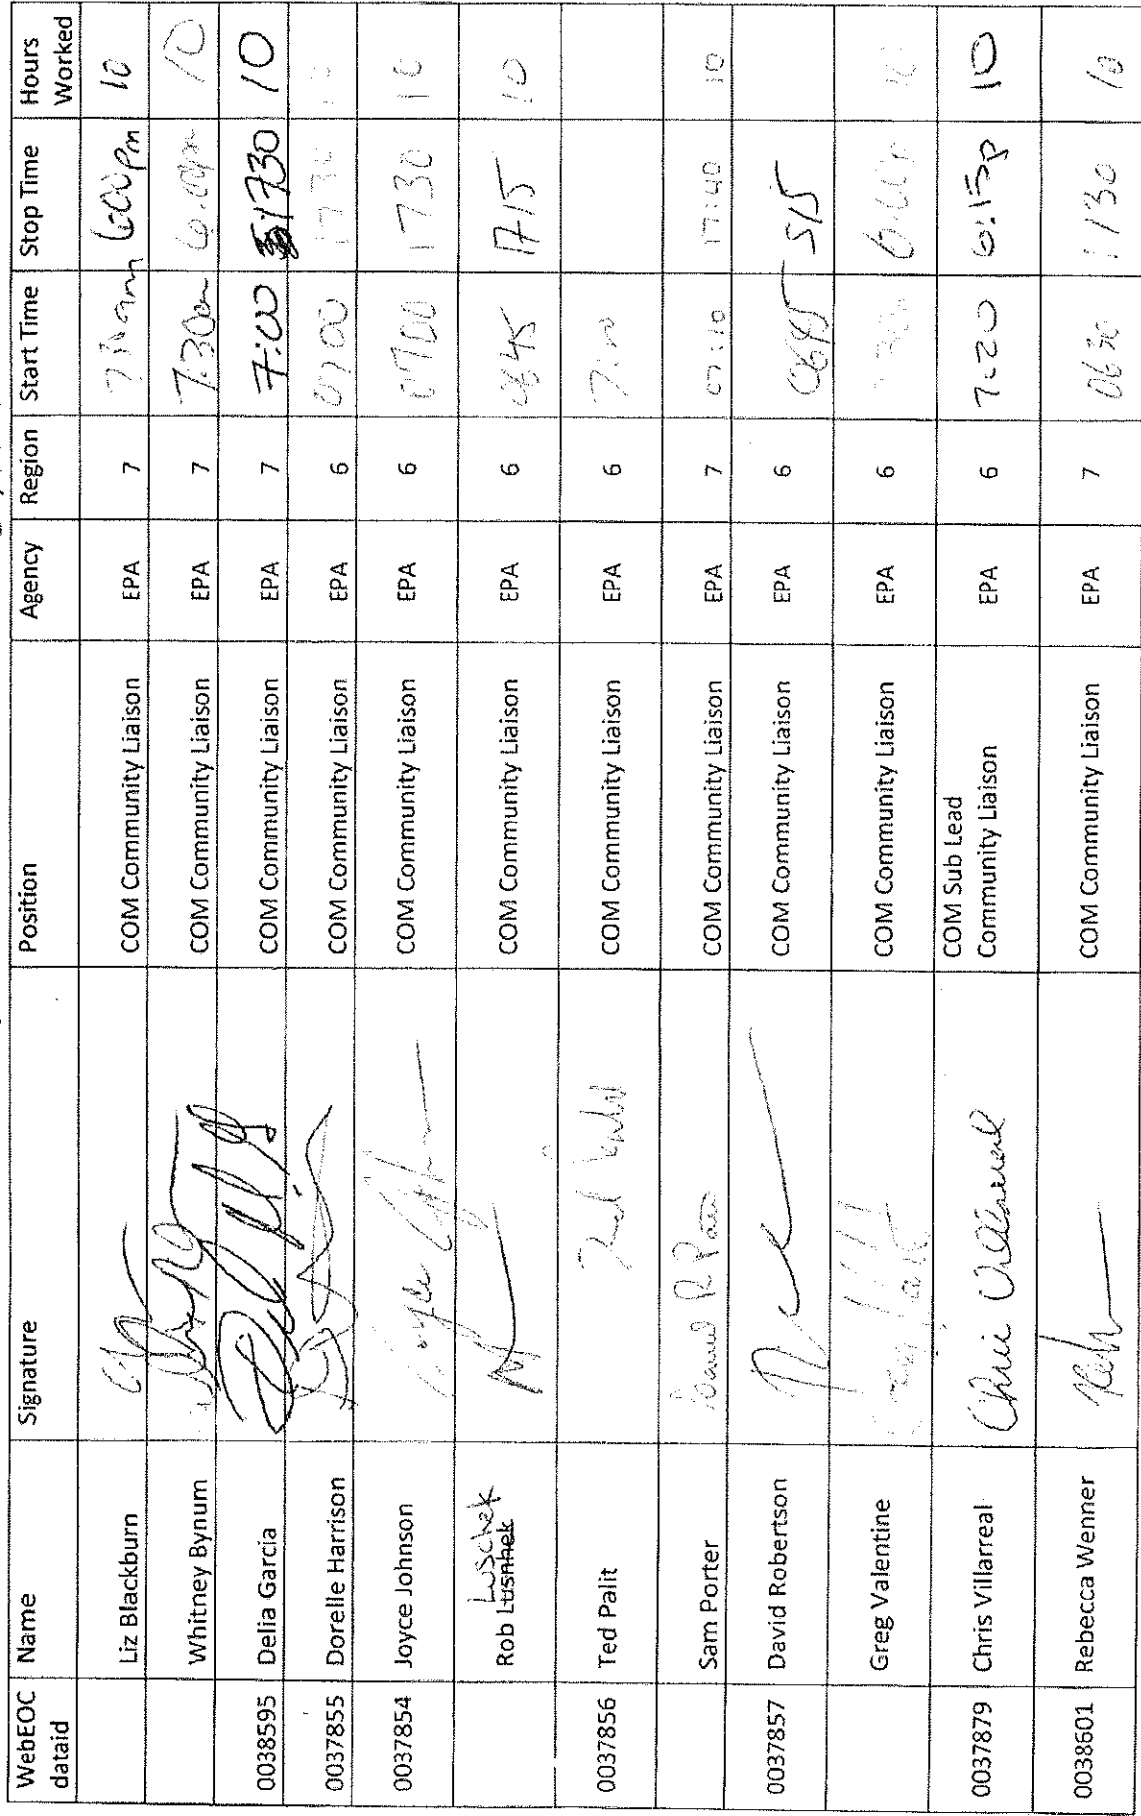 WebEOC dataid Name Signature Position Agency Region Start Time Stop Time Hours Worked
Liz Blackburn COM Community Liaison EPA 7 600pm 10
Whitney Bynum COM Community Liaison EPA 7 7:30am 6:00pm 10
0038595 Delia Garcia COM Community Liaison EPA 7 7:00 1730 10
0037855 Dorelle Harrison COM Community Liaison EPA 6 0700 1730 10
0037854 Joyce Johnson COM Community Liaison EPA 6 0700 1730 10
Luschek
Rob Lusnhek COM Community Liaison EPA 6 0645 1715 10
0037856 Ted Palit COM Community Liaison EPA 6 7:00
Sam Porter COM Community Liaison EPA 7 07:10 17:40 10
0037857 David Robertson COM Community Liaison EPA 6 0645 515
Greg Valentine COM Community Liaison EPA 6 10
0037879 Chris Villarreal Chris Villarreal COM Sub Lead Community Liaison EPA 6 7:20 6:15p 10
0038601 Rebecca Wenner COM Community Liaison EPA 7 0630 10